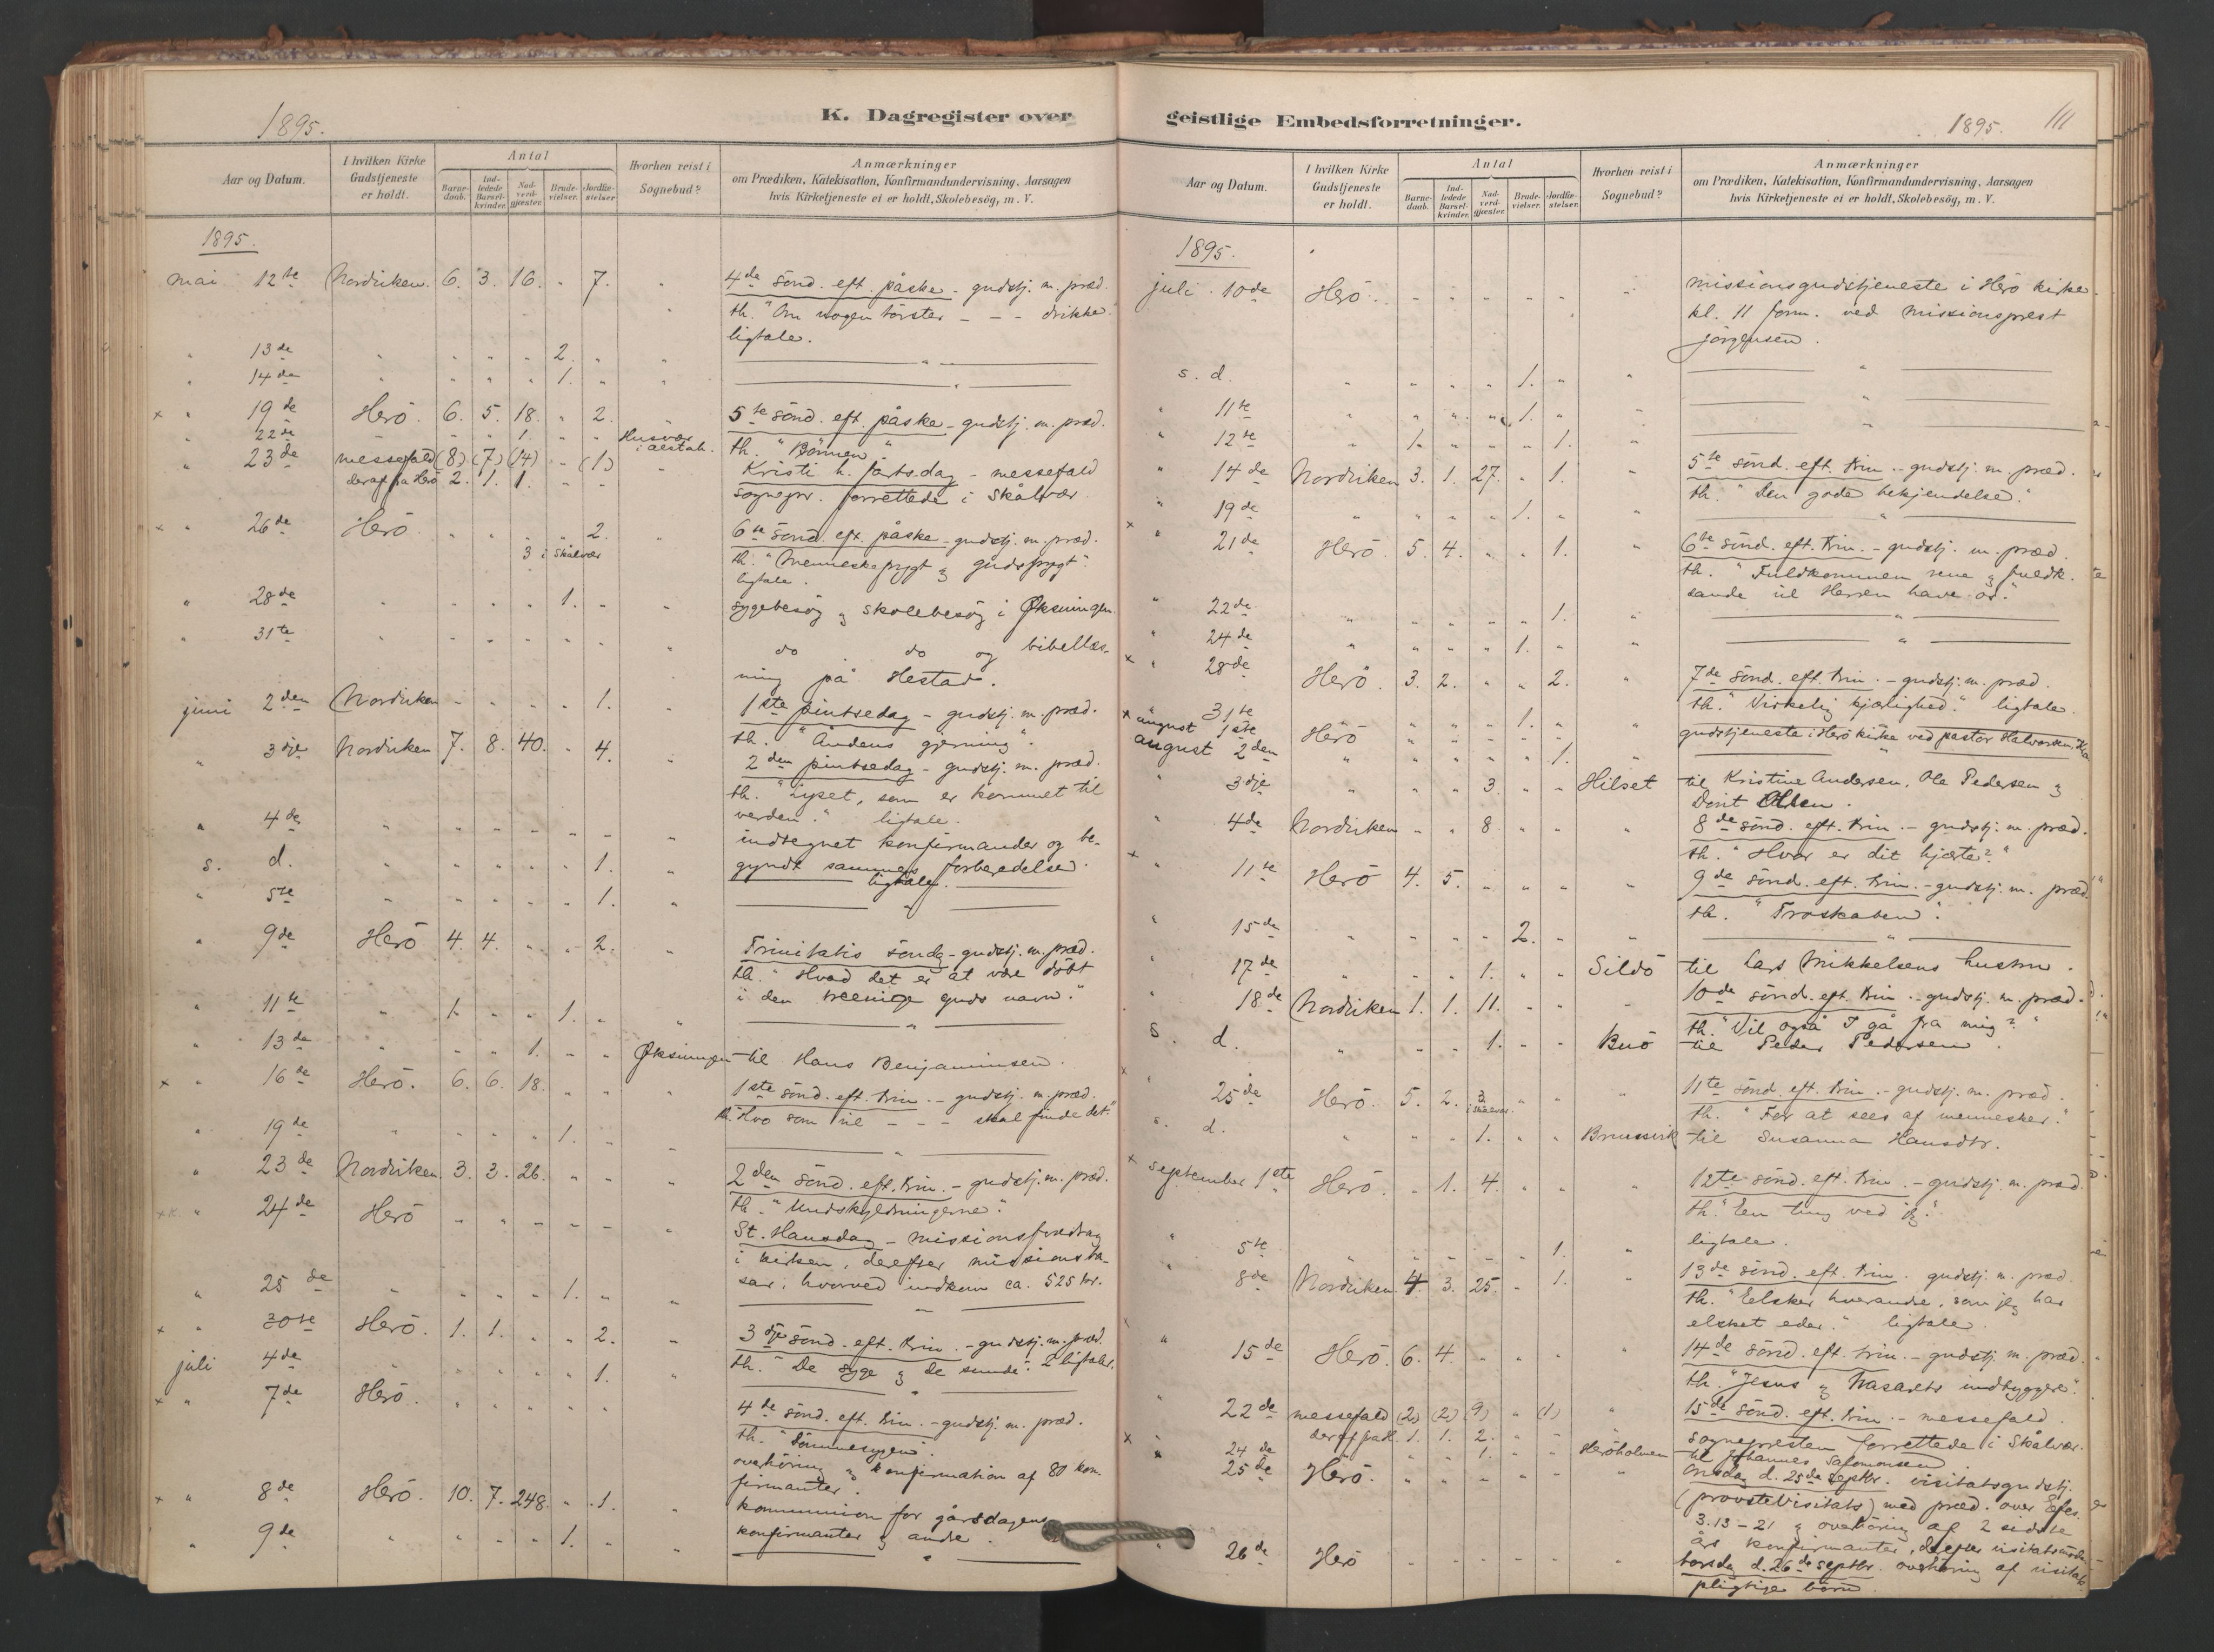 1895.
K. Dagregister over
Aar og Datum.
I hvilken Kirke Gudstjeneste er holdt.
Antal
Barnedaab.
Indledede Barselkvinder.
Nadverdgjæster.
Brudevielser.
Jordfæstelser.
Hvorhen reist i Sognebud?
Anmærkninger
om Prædiken, Katekisation, Konfirmandundervisning, Aarsagen
hvis Kirketjeneste ei er holdt, Skolebesög, m. V.
1895.
mai 12te Nordviken. 6. 3. 16. " 7. " 4de sönd. eft. påske - gudstj. m. præd.
th. "Om nogen törster - - - drikke."
ligtale.
" 13de " " " " 2. " "
" 14de " " " " 1. " "
x " 19de Herö. 6. 5. 18. " 2. 5te sönd. eft. påske - gudstj. m. præd.
" 22de " " 1. " " Husvær i alstah. th. "Bönnen".
" 23de messefald (8) (7) (14) " (1) " Kristi h. fartsdag - messefald
deraf fra Herö 2. 1. 1. " " sognepr. forrettede i Skålvær.
x " 26de Herö. " " " " 2. " 6te sönd. eft. påske - gudstj. m. præd.
3 i Skålvær th. "Menneskefrygt og gudsfrygt".
ligtale.
" 28de " " " " 1. " " sygebesög og skolebesög i Øksningen.
" 31te " " " " " " " do do og bibellæs-
ning på Hestad.
juni 2den Nordviken - - - - 1. " 1ste pintsedag - gudstj. m. præd.
th. "Åndens gjerning".
" 3dje Nordviken 7. 8. 40. " 4. " 2den pintsedag - gudstj. m. præd.
th. "Lyset, som er kommet til
verden." ligtale.
" 4de " " " " " " " indtegnet konfirmander og be-
gyndt sammes forberedelse.
s. d. " " " " " 1. " ligtale.
" 5te " " " " " 1. "
" 9de Herö 4. 4. " " 2. " Trinitatis söndg - gudstj. m. præd.
th. "Hvad det er at være döbt
i den treenige guds navn."
" 11te " 1. " " 1. " "
" 13de " " " 1. " " Øksningen til Hans Benjaminsen.
x " 16de Herö. 6. 6. 18. " " " 1ste sönd. eft. trin. - gudstj. m. præd.
th. "Hvo som vil - - - skal finde det."
" 19de " " " " 1. " "
" 23de Nordviken. 3. 3. 26. " " " 2den sönd. eft. trin. - gudstj. m. præd.
th. "Undskyldningerne".
" 24de Herö " " " " " " St. Hansdag - missionsforedrag
i kirken, derefter missionsba-
sar, hvorved indkom ca. 525 kr.
" 25de " " " " 1. " "
x " 30te Herö. 1. 1. " " 2. " 3dje sönd. eft. trin. - gudstj. m. præd.
th. "De syge og de sunde". 2 ligtaler.
juli 4de " " " " " 1. "
x " 7de Herö. " " " " " 4de sönd. eft. trin. - gudstj. m. præd.
th. "Dommesygen".
overhöring og konfirmation af 80 kon-
firmanter.
x " 8de Herö. 10. 7. 248. " 1. " kommunion for gårsdagens
konfirmanter og andre.
" 9de " " " " 1. " "
geistlige Embedsforretninger.
1895. 111
Aar og Datum.
I hvilken Kirke Gudstjeneste er holdt.
Antal
Barnedaab.
Indledede Barselkvinder.
Nadverdgjæster.
Brudevielser.
Jordfæstelser.
Hvorhen reist i Sognebud?
Anmærkninger
om Prædiken, Katekisation, Konfirmandundervisning, Aarsagen
hvis Kirketjeneste ei er holdt, Skolebesög, m. V.
1895.
juli 10de Herö. - - - - - " missionsgudstjeneste i Herö kirke
kl. 11 form. ved missionsprest
Jörgensen.
s. d. " " " " 1. " "
" 11te " " " " 1. " "
" 12te " 1. " " " 1. "
" 14de Nordviken 3. 1. 27. " 1. " 5te sönd. eft. trin. - gudstj. m. præd.
th. "Den gode bekjendelse."
" 19de " " " " 1. " "
x " 21de Herö. 5. 4. " " 1. " 6te sönd. eft. trin. - gudstj. m. præd.
th. "Fuldkommen rene og fuldk.
sande vil Herren have os."
" 22de " " " " " 1. "
" 24de " " " " 1. " "
x " 28de Herö. 3. 2. " " 2. " 7de sönd. eft. trin. - gudstj. m. præd.
th. "Virkelig kjærlighed." ligtale.
" 31te " " " " 1. " "
x august 1ste Herö " " " " " " gudstjeneste i Herö kirke ved pastor Halvorsen
august 2den " " " " " 1. "
" 3dje " " " 3. " " Hilset til Kristine Andersen, Ole Pedersen og
Dorit Olsen.
" 4de Nordviken - " 8. " " " 8de sönd. eft. trin. - gudstj. m. præd.
th. "Hvor er dit hjærte?"
x " 11te Herö 4. 5. " " " " 9de sönd. eft. trin. - gudstj. m. præd.
th. "Troskaben".
" 15de " " " " 2. " "
" 17de " " " 1. " " Sildö til Lars Mikkelsens hustru.
" 18de Nordviken 1. 1. 11. " " " 10de sönd. eft. trin. - gudstj. m. præd.
th. "Vil også I gå fra mig?"
s. d. " " " 1. - - Buö til Peder Pedersen.
x " 25de Herö. 5. 2. 3. i Skålvær " " " 11te sönd. eft. trin. - gudstj. m. præd.
th. "For at sees af mennesker."
s. d. " " " 1. " " til Susanna Hansdtr.
x september 1ste Herö. - 1. 4. " " " 12te sönd. eft. trin. - gudstj. m. præd.
th. "En ting ved jeg."
" 5te " " " " " 1. " ligtale.
" 8de Nordviken. 4. 3. 25. " 1. " 13de sönd. eft. trin. gudstj. m. præd.
th. "Elsker hverandre, som jeg har
elsket eder." ligtale.
" 15de Herö. 6. 4. " " " " 14de sönd. eft. trin. - gudstj. m. præd.
th. "Jesus og Nasarets indbyggere".
" 22de messefald (2) (2) (9) " (1) " 15de sönd. eft. trin. - messefald.
deraf fra H. 1. 1. 2. " " sognepresten forrettede i Skålvær.
" 24de " " 1. " " Heröholmen til Johannes Salomonsen.
x " 25de Herö. " " " " " " Onsdag d. 25de septbr. visitatsgudstj.
(provstevisitats) med præd. over Efes.
3.13-21 og overhöring af 2 sidste
års konfirmanter, derefter visitatsmöde
" 26de Herö - - - - - " torsdag d. 26de septbr. overhöring af visitats-
pligtige börn.